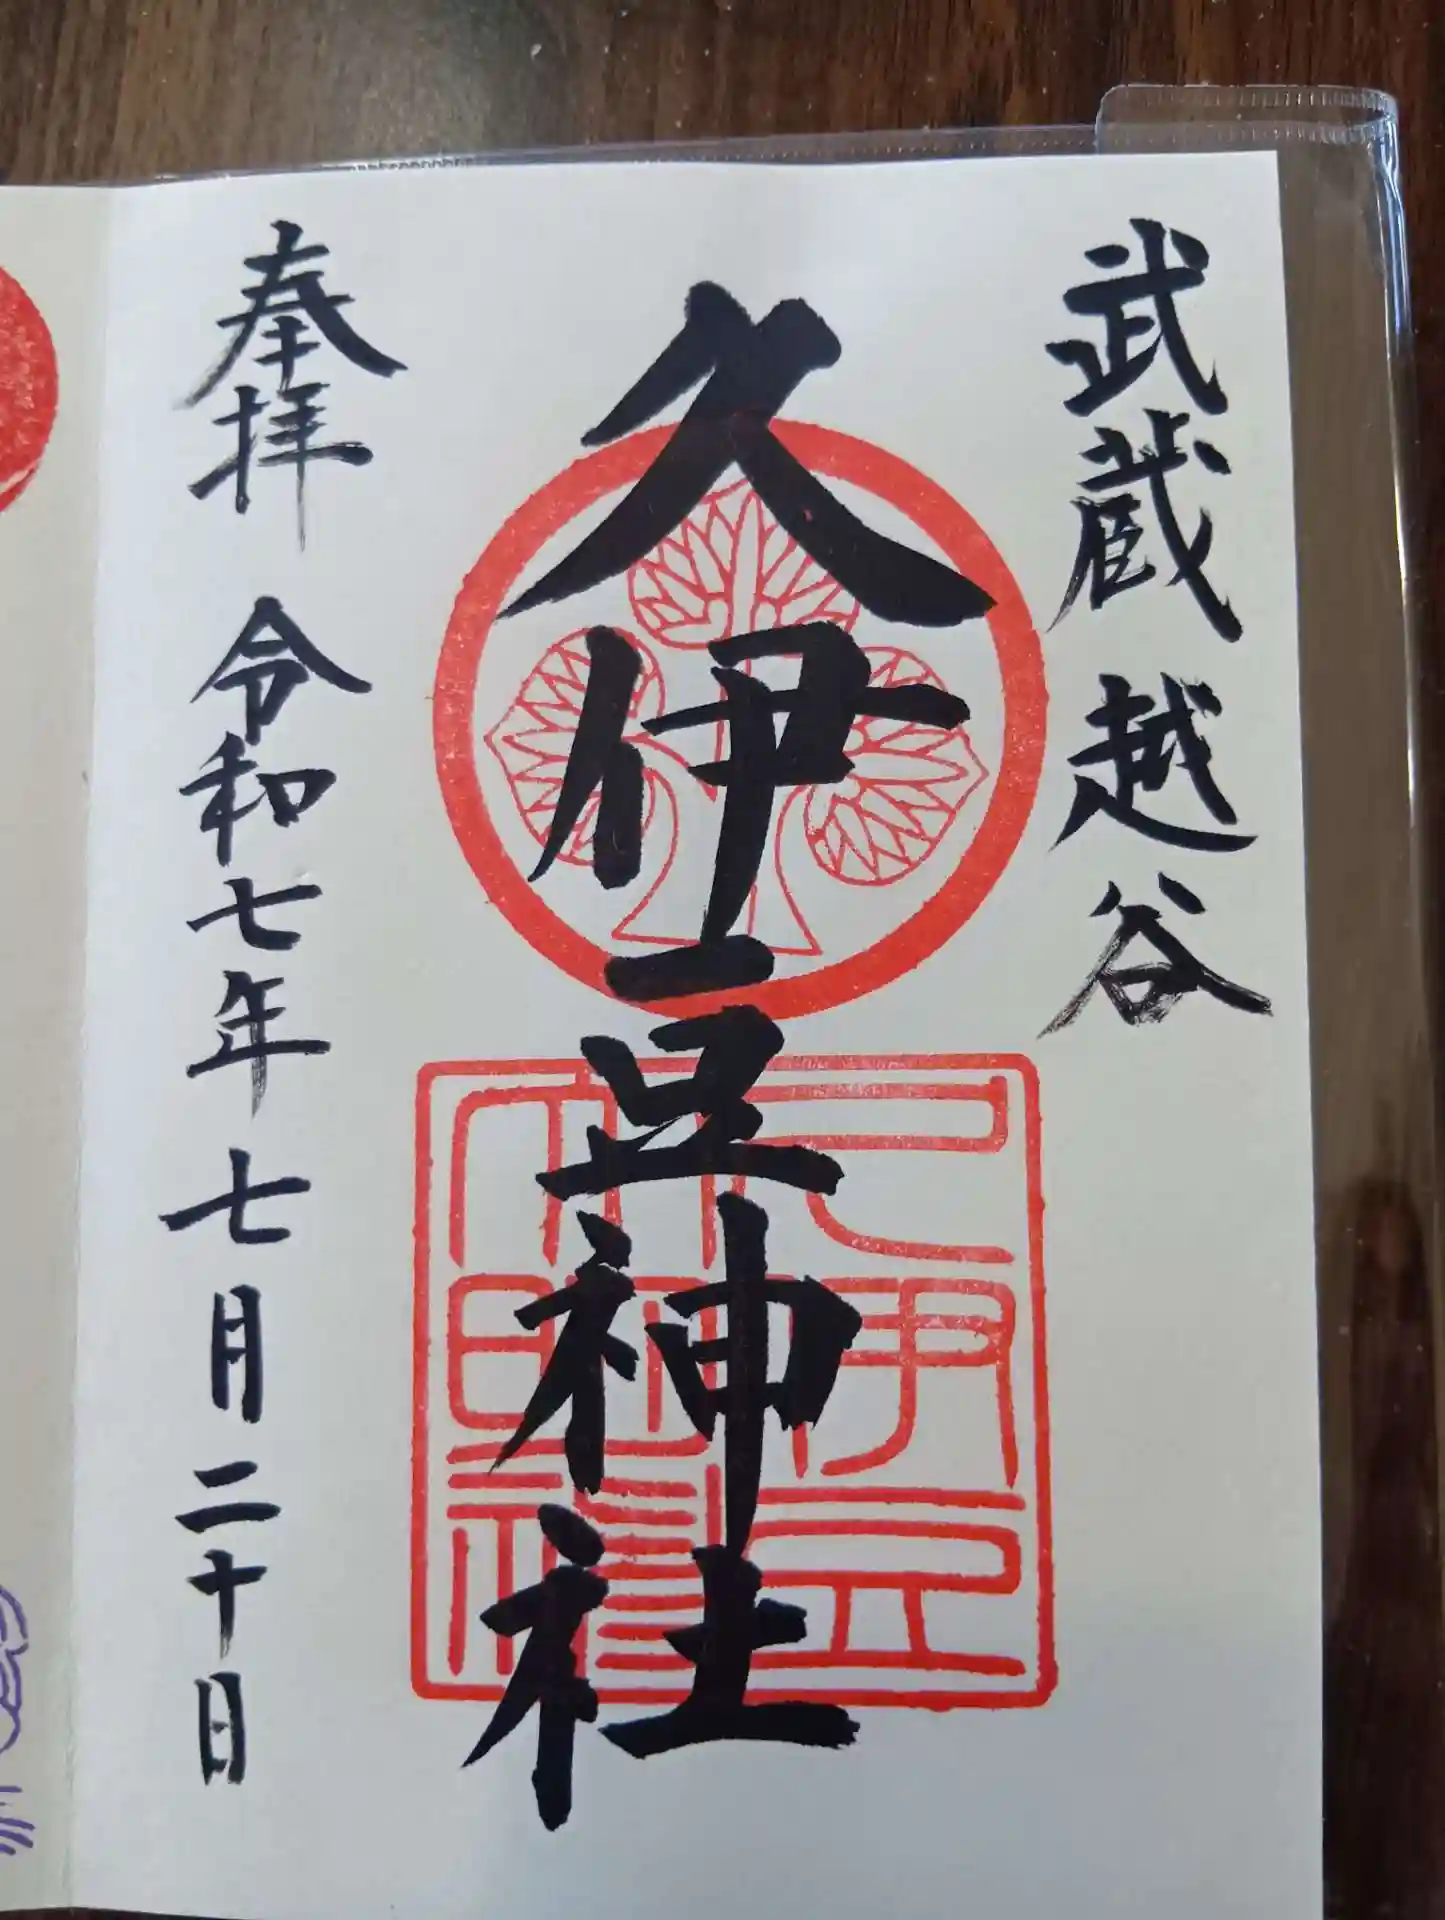 武蔵 越谷
久伊豆神社
奉拝 令和七年 七月二十日